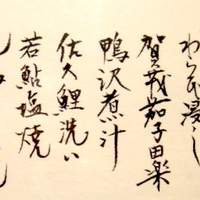 わらび浸し
賀茂茄子田楽
鴨沢煮汁
佐久鯉洗い
若鮎塩焼